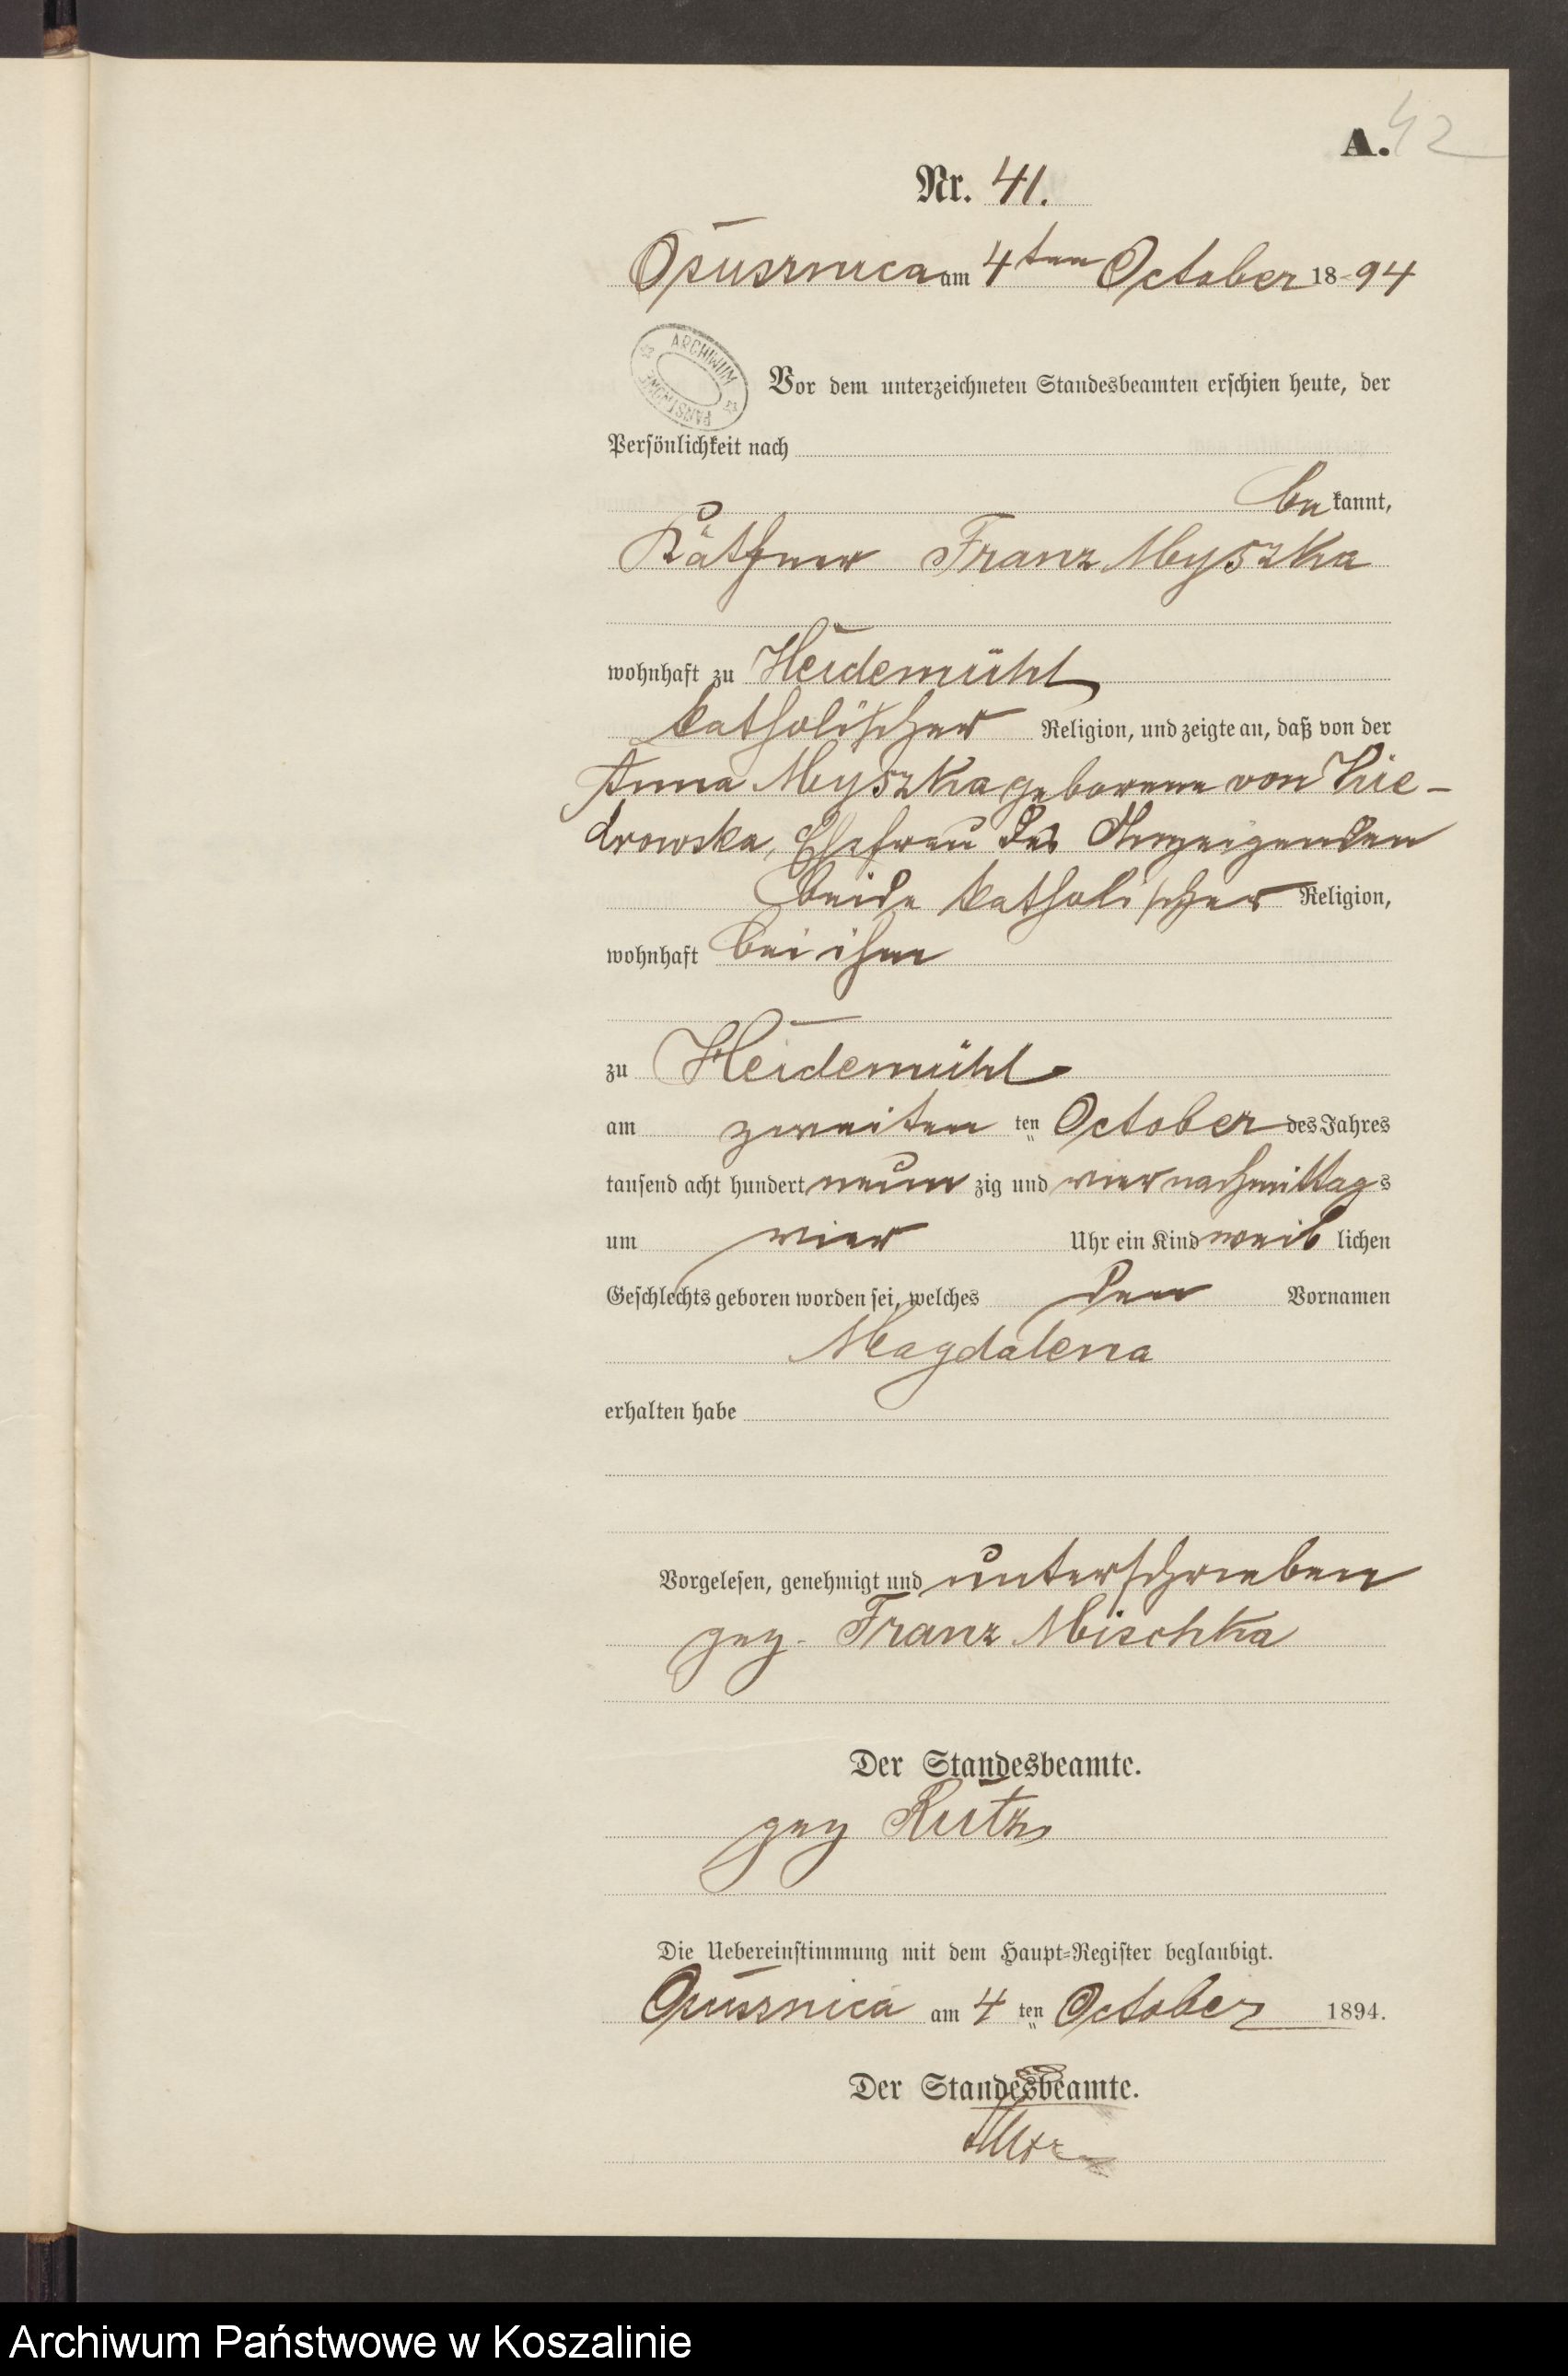 A. 42
Nr. 41.
Osusznica am 4ten October 18-94
ARCHIWUM PAŃSTWOWE
Vor dem unterzeichneten Standesbeamten erschien heute, der
Persönlichkeit nach
bekannt,
Käthner Franz Myszka
wohnhaft zu Heidemühl
katholischer Religion, und zeigte an, daß von der
Anna Myszka geborene von
Ehefrau des Anzeigenden
beide katholischer Religion,
wohnhaft bei ihm
zu Heidemühl
am zweiten ten October des Jahres
tausend acht hundert neun zig und vier nachmittags
um vier Uhr ein Kind weiblichen
Geschlechts geboren worden sei, welches den Vornamen
Magdalena
erhalten habe
Vorgelesen, genehmigt und unterschrieben
gez. Franz Mischka
Der Standesbeamte.
gez Kutz
Die Uebereinstimmung mit dem Haupt=Register beglaubigt.
Osusznica am 4 ten October 1894.
Der Standesbeamte.
Archiwum Państwowe w Koszalinie